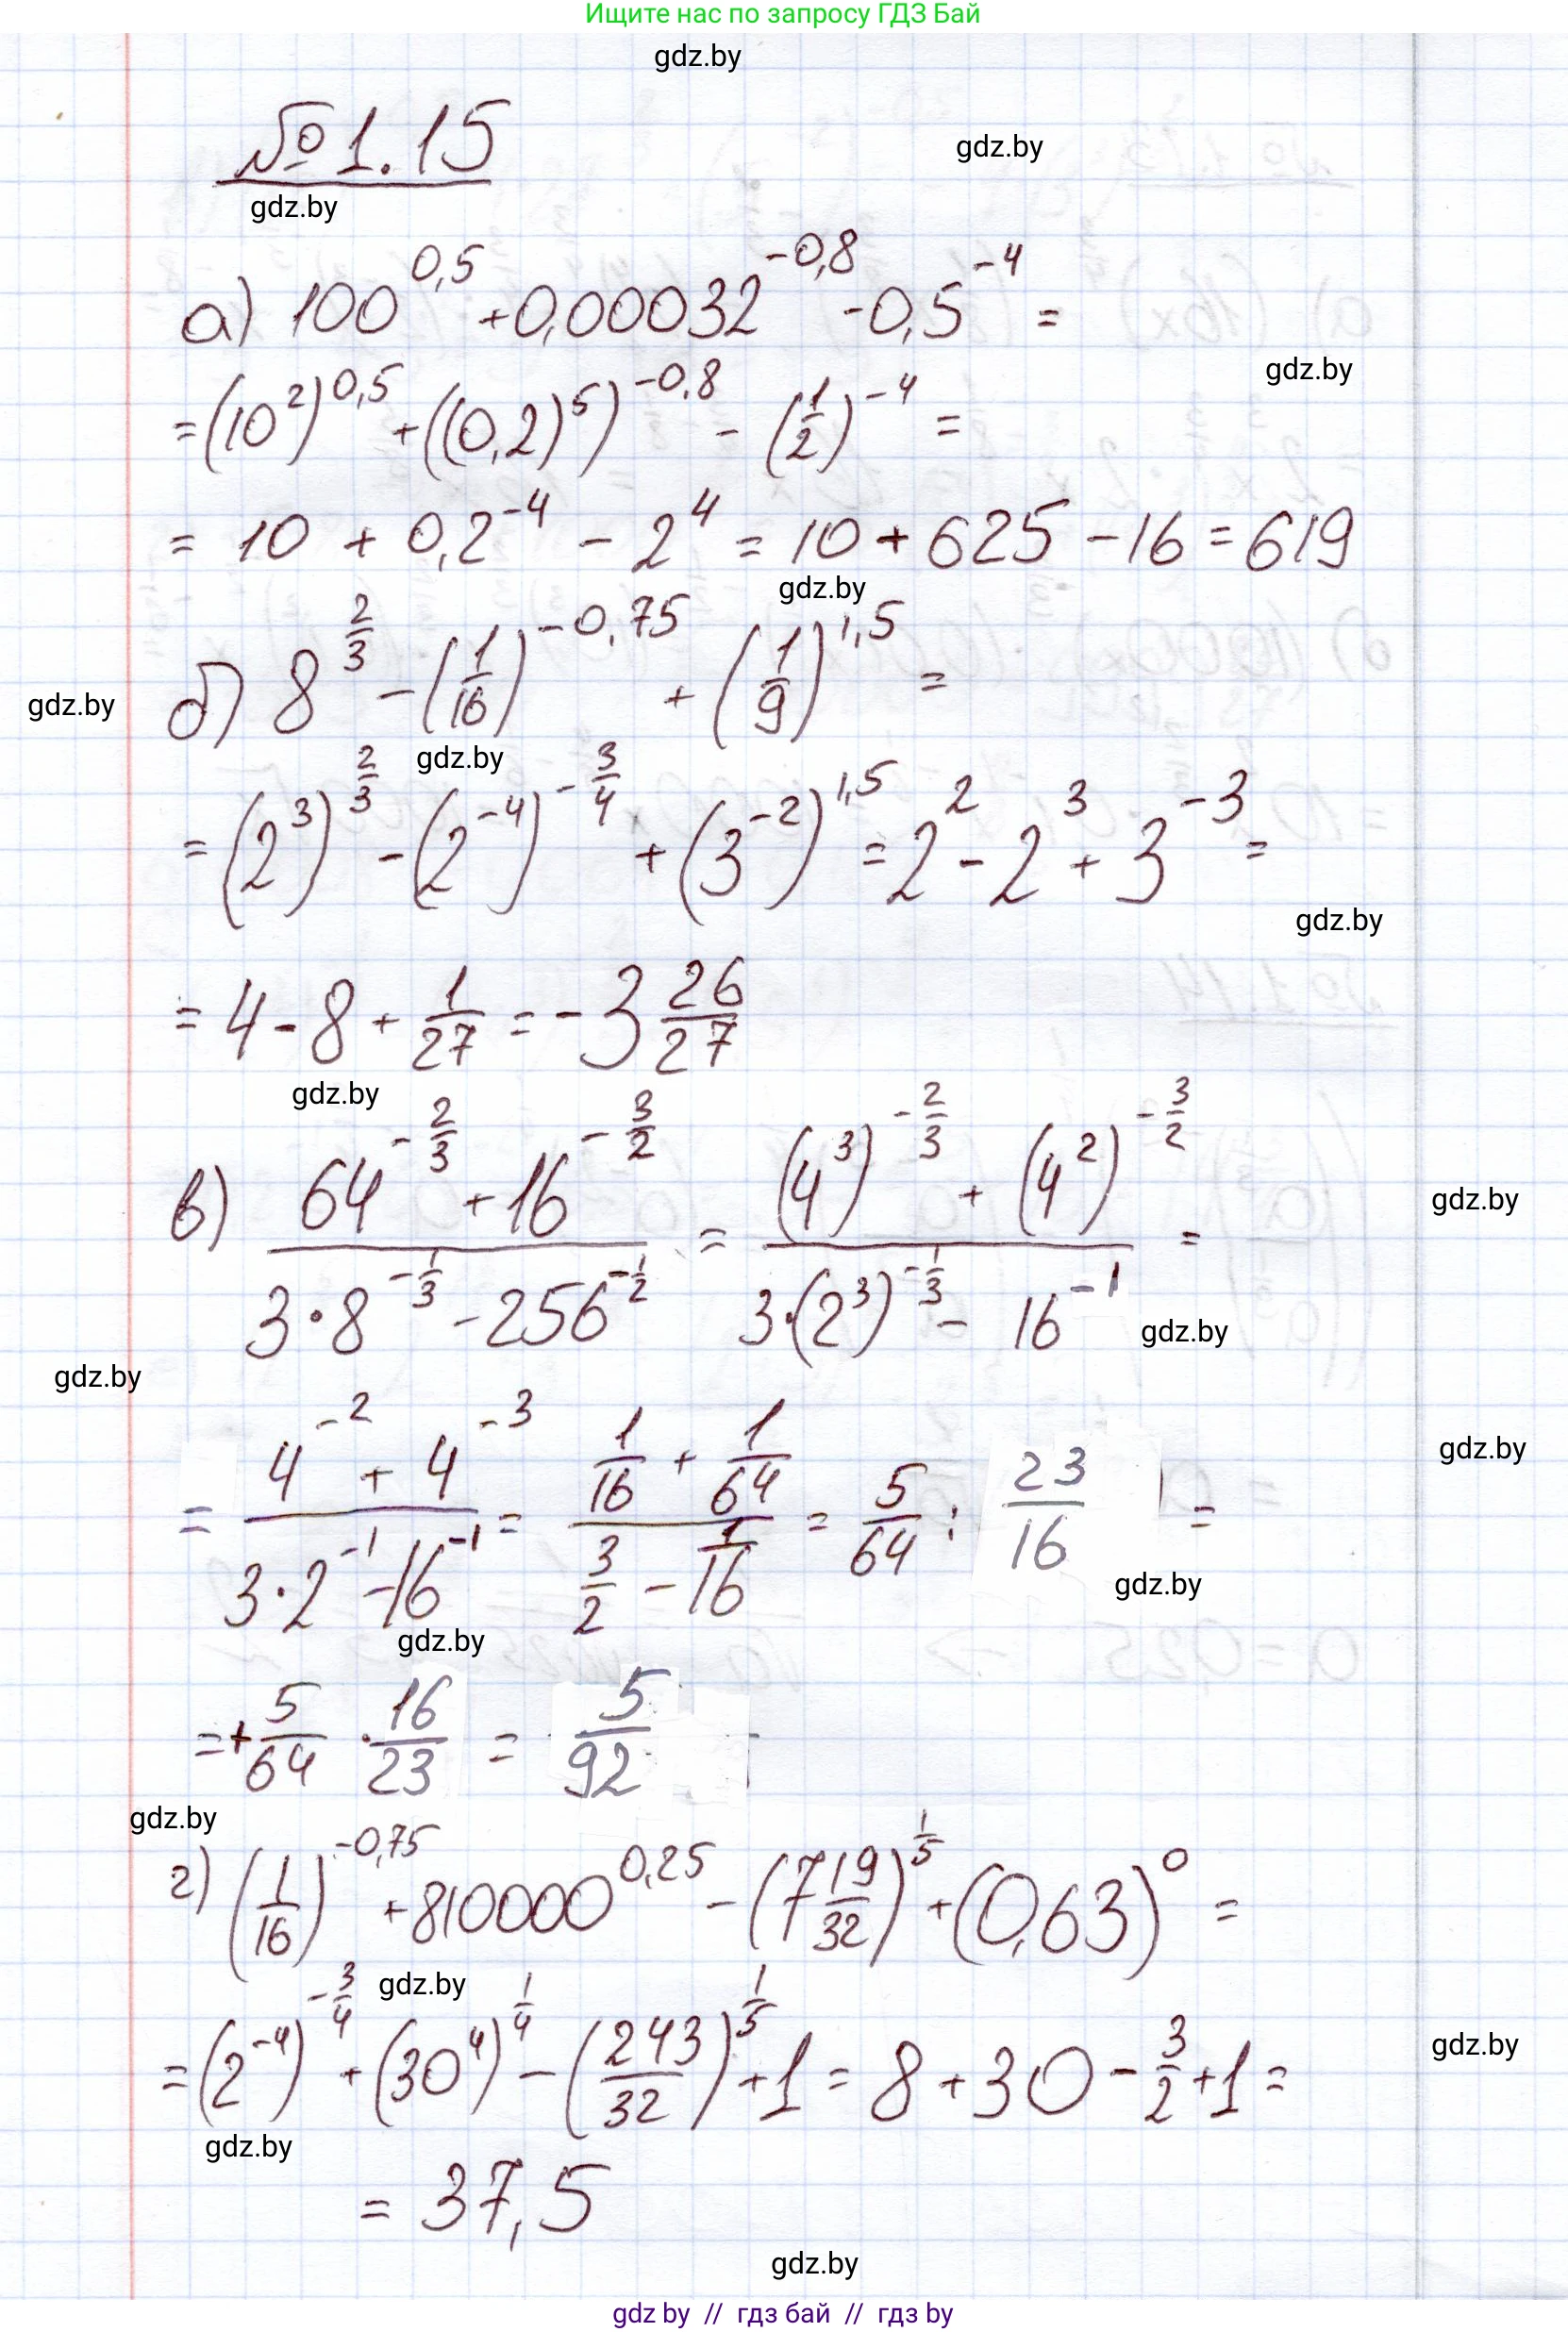 Ищите нас по запросу ГДЗ Бай
gdz.by
№1.15
gdz.by
gdz.by
а) 100^0,5 + 0,00032^-0,8 - 0,5^-4 =
gdz.by
= (10^2)^0,5 + ((0,2)^5)^-0,8 - (1/2)^-4 =
= 10 + 0,2^-4 - 2^4 = 10 + 625 - 16 = 619
gdz.by
б) 8^(2/3) - (1/16)^-0,75 + (1/9)^1,5 =
gdz.by
gdz.by
= (2^3)^(2/3) - (2^-4)^(-3/4) + (3^-2)^1,5 = 2^2 - 2^3 + 3^-3 =
gdz.by
= 4 - 8 + 1/27 = -3 26/27
gdz.by
в) (64^(-2/3) + 16^(-3/2)) / (3·8^(-1/3) - 256^(-1/2)) = ((4^3)^(-2/3) + (4^2)^(-3/2)) / (3·(2^3)^(-1/3) - 16^-1) =
gdz.by
gdz.by
gdz.by
= (4^-2 + 4^-3) / (3·2^-1 - 16^-1) = (1/16 + 1/64) / (3/2 - 1/16) = 5/64 : 23/16 =
gdz.by
gdz.by
gdz.by
= + 5/64 · 16/23 = 5/92
gdz.by
г) (1/16)^-0,75 + 810000^0,25 - (7 19/32)^(1/5) + (0,63)^0 =
gdz.by
= (2^-4)^(-3/4) + (30^4)^(1/4) - (243/32)^(1/5) + 1 = 8 + 30 - 3/2 + 1 =
gdz.by
gdz.by
= 37,5
gdz.by
gdz by // гдз бай // гдз by